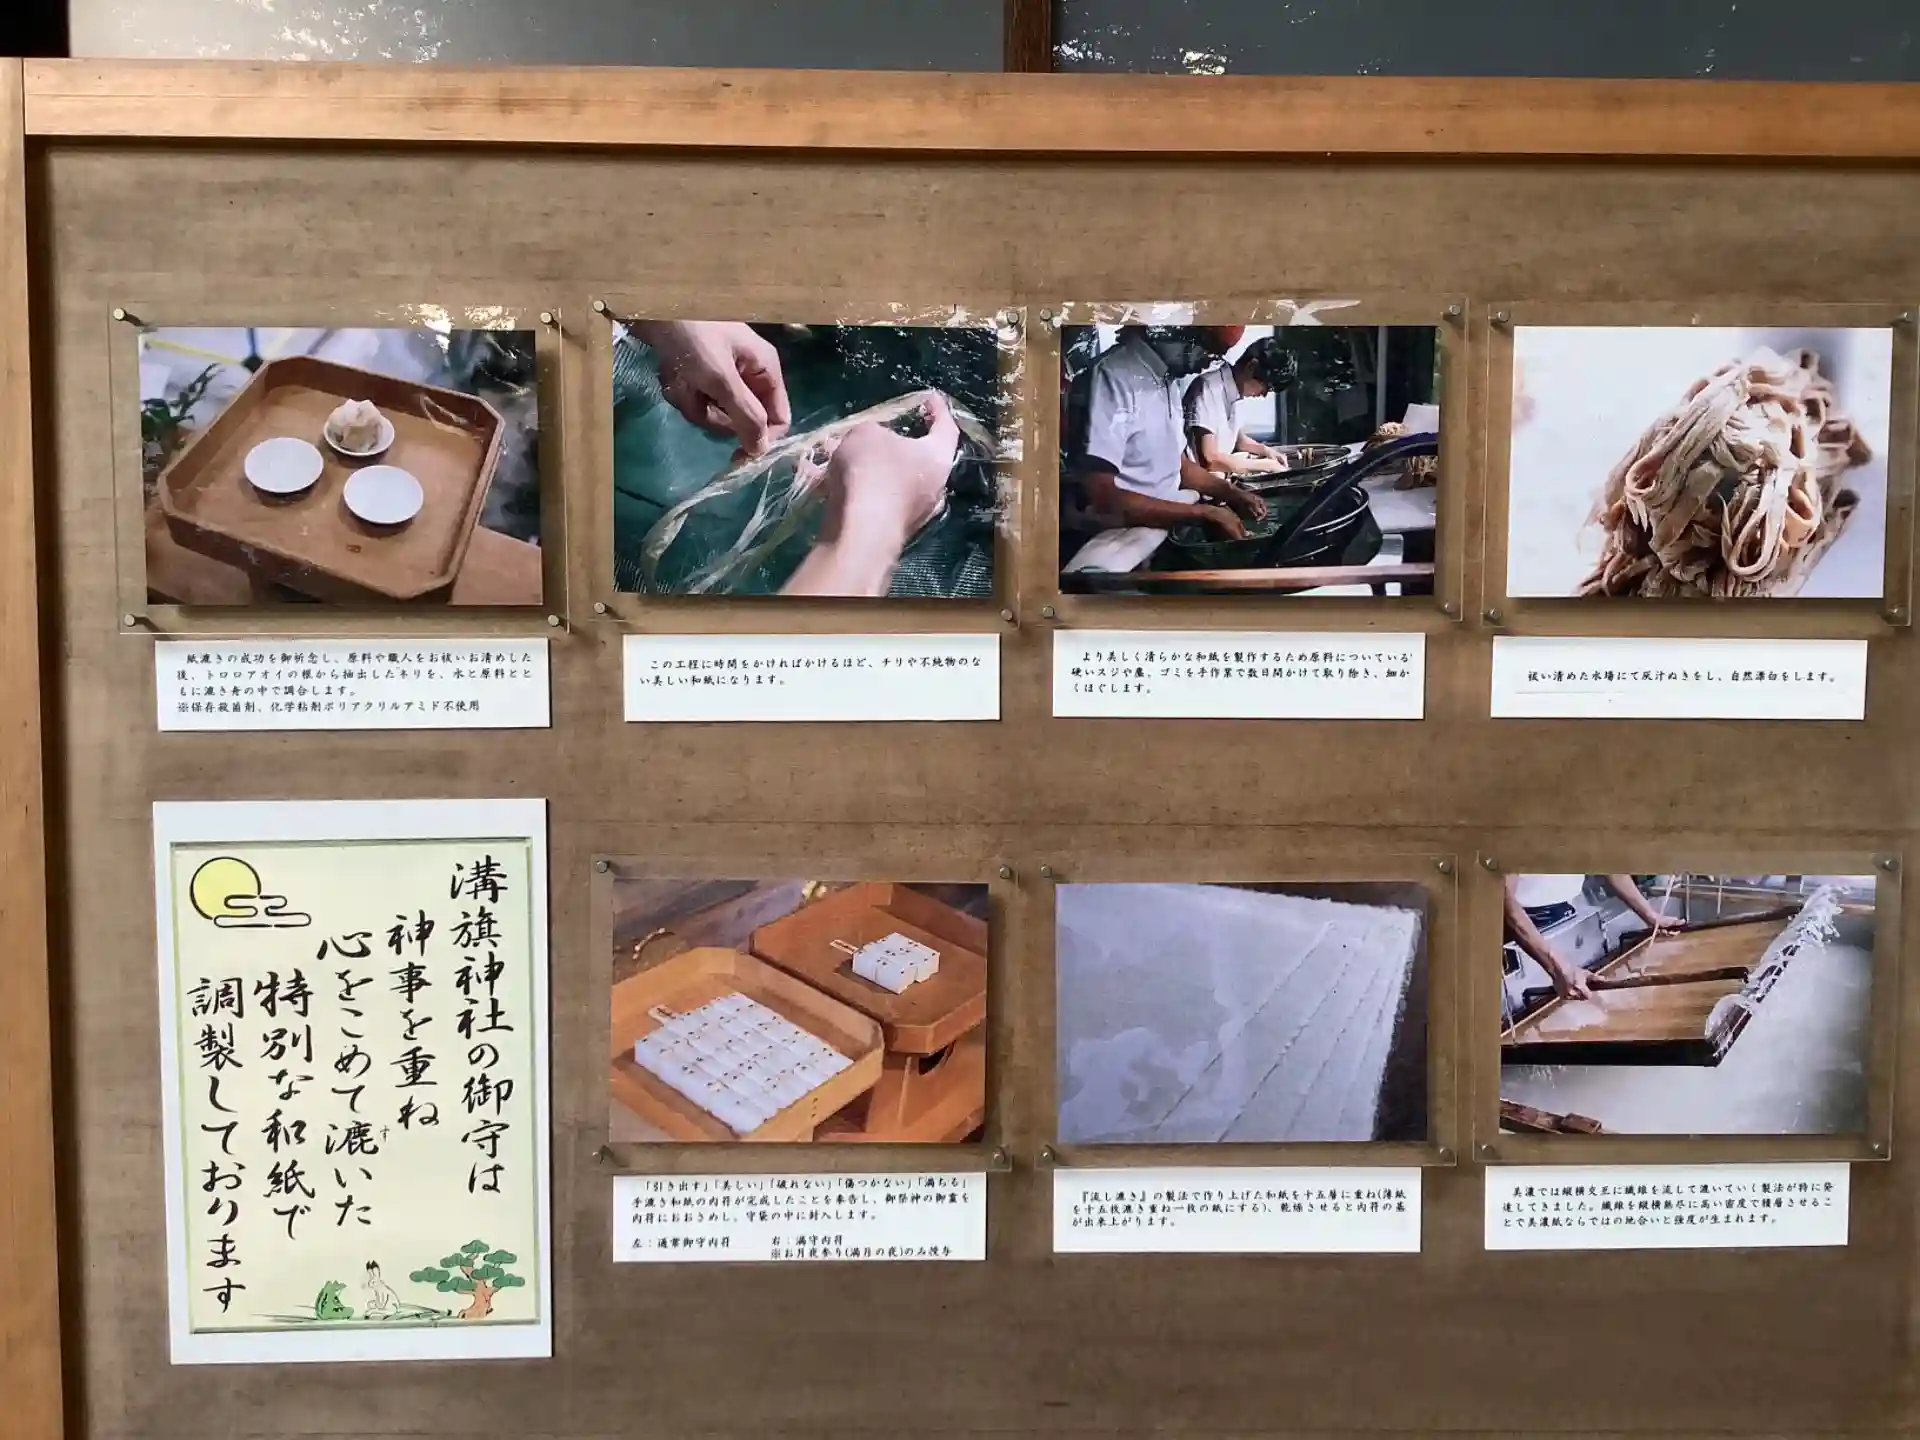 紙漉きの成功を御祈念し、原料や職人をお祓いお清めした
後、トロロアオイの根から抽出したネリを、水と原料とと
もに漉き舟の中で調合します。
※保存殺菌剤、化学粘剤ポリアクリルアミド不使用
この工程に時間をかければかけるほど、チリや不純物のな
い美しい和紙になります。
より美しく清らかな和紙を製作するため原料についている
硬いスジや塵、ゴミを手作業で数日間かけて取り除き、細か
くほぐします。
祓い清めた水場にて灰汁ぬきをし、自然漂白をします。
溝旗神社の御守は
神事を重ね
心をこめて漉いた
す
特別な和紙で
調製しております
「引き出す」「美しい」「破れない」「傷つかない」「満ちる」
手漉き和紙の内符が完成したことを奉告し、御祭神の御霊を
内符におおさめし、守袋の中に封入します。
左：通常御守内符 右：満守内符
※お月夜参り(満月の夜)のみ授与
『流し漉き』の製法で作り上げた和紙を十五層に重ね(薄紙
を十五枚漉き重ね一枚の紙にする)、乾燥させると内符の基
が出来上がります。
美濃では縦横交互に繊維を流して漉いていく製法が特に発
達してきました。繊維を縦横無尽に高い密度で積層させるこ
とで美濃紙ならではの地合いと強度が生まれます。